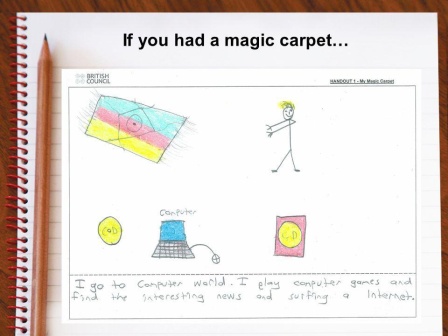 If you had a magic carpet...
BRITISH
COUNCIL
HANDOUT 1 - My Magic Carpet
Computer
CD
CD
I go to Computer world. I play computer games and
find the interesting news and surfing a Internet.